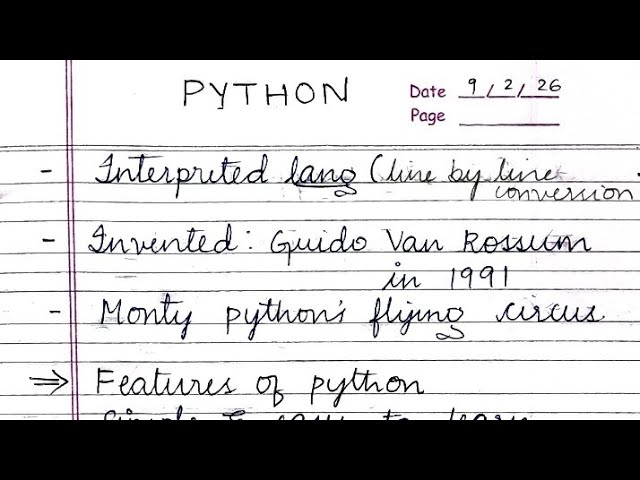 PYTHON
Date 9/2/26
Page
- Interpreted lang (line by line
conversion
- Invented: Guido Van Rossum
in 1991
- Monty python's flying circus
⇒ Features of python
Simple & easy to learn